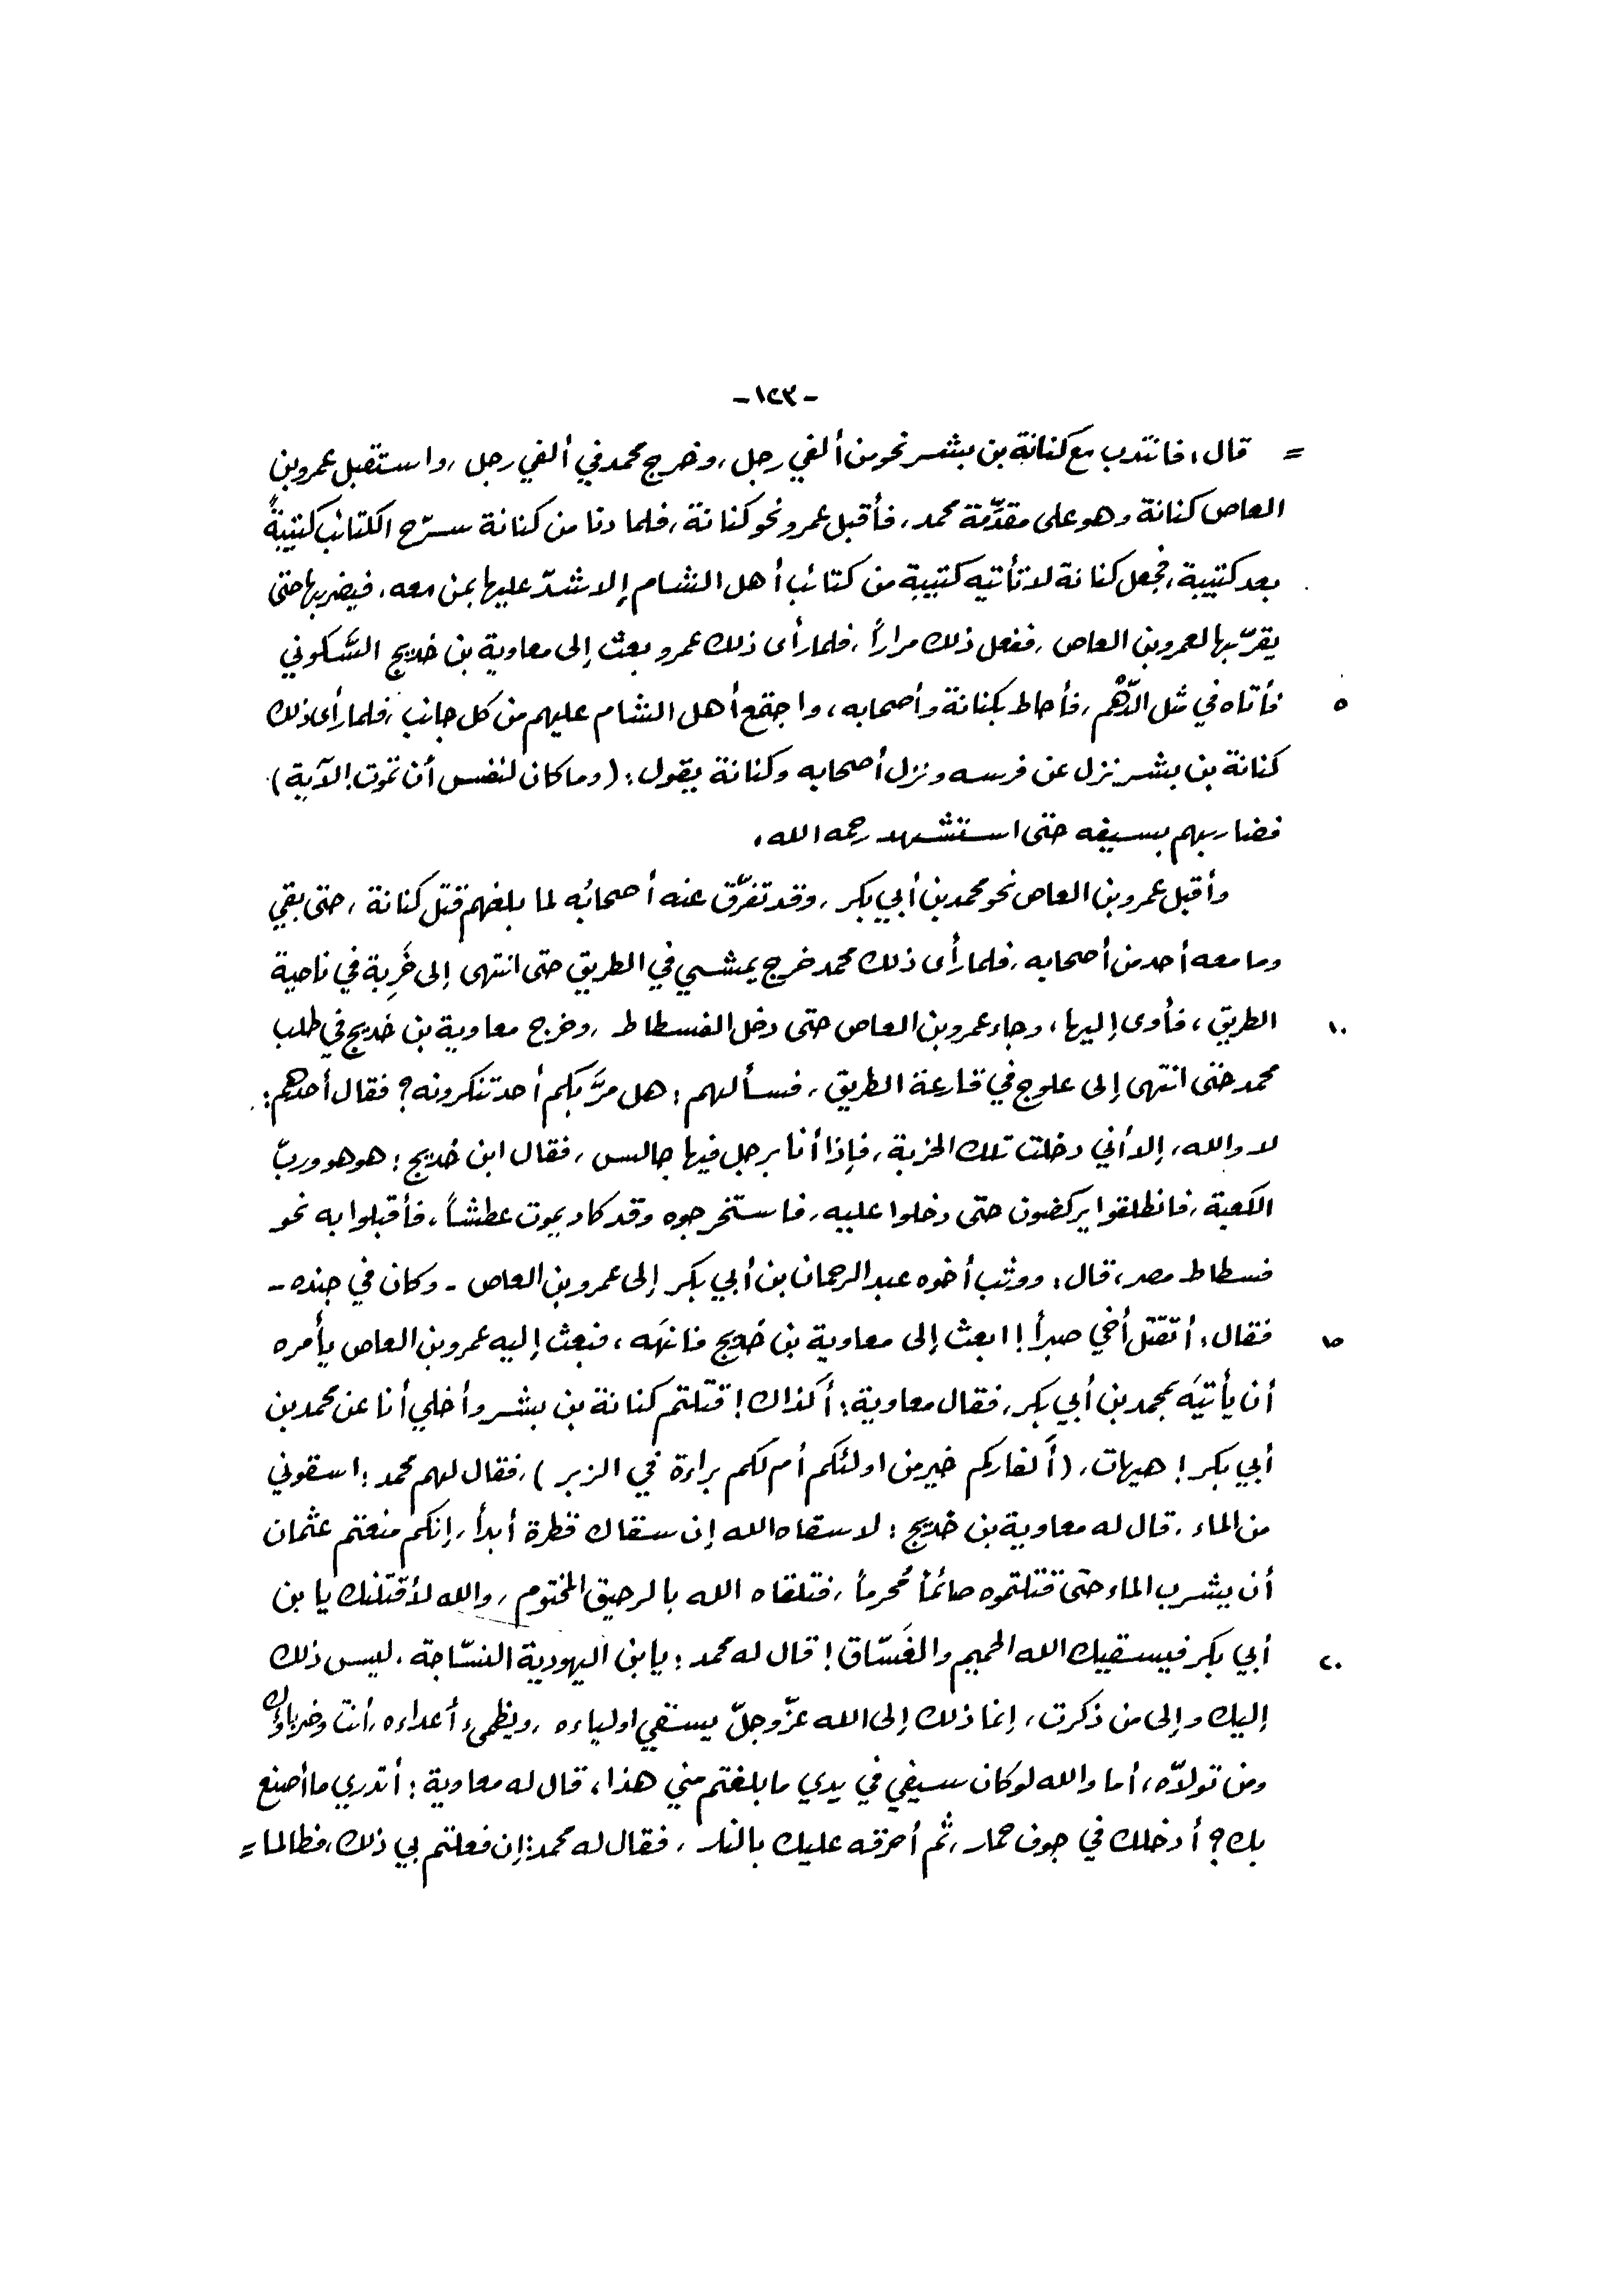 -١٢٣-
= قال، فانتدب مع كنانة بن بشر نحو من ألفي رجل، وخرج محمد في ألفي رجل، واستقبل عمرو بن
العاص كنانة وهو على مقدّمة محمد، فأقبل عمرو نحو كنانة، فلما دنا من كنانة سرّح الكتائب كتيبةً
بعد كتيبة، فجعل كنانة لا تأتيه كتيبة من كتائب أهل الشام إلا شدّ عليها بمن معه، فيضربها حتى
يقرّبها لعمرو بن العاص، ففعل ذلك مراراً، فلما رأى ذلك عمرو بعث إلى معاوية بن خديج السَّكوني
٥ فأتاه في مثل الدّهم، فأحاط بكنانة وأصحابه، واجتمع أهل الشام عليهم من كل جانب، فلما رأى ذلك
كنانة بن بشر نزل عن فرسه ونزل أصحابه وكنانة يقول: (وما كان لنفس أن تموت إلا الآية)
فضاربهم بسيفه حتى استشهد رحمه الله.
وأقبل عمرو بن العاص نحو محمد بن أبي بكر، وقد تفرّق عنه أصحابُه لما بلغهم قتل كنانة، حتى بقي
وما معه أحد من أصحابه، فلما رأى ذلك محمد خرج يمشي في الطريق حتى انتهى إلى خَرِبة في ناحية
١٠ الطريق، فأوى إليها، وجاء عمرو بن العاص حتى دخل الفسطاط، وخرج معاوية بن خديج في طلب
محمد حتى انتهى إلى علوج في قارعة الطريق، فسألهم: هل مرَّ بكم أحد تنكرونه؟ فقال أحدهم:
لا والله، إلا أني دخلت تلك الخربة، فإذا أنا برجل فيها جالس، فقال ابن خُديج: هو هو وربّ
الكعبة، فانطلقوا يركضون حتى دخلوا عليه، فاستخرجوه وقد كاد يموت عطشاً، فأقبلوا به نحو
فسطاط مصر، قال: ووثب أخوه عبد الرحمان بن أبي بكر إلى عمرو بن العاص - وكان في جنده -
١٥ فقال: أتقتل أخي صبراً! ابعث إلى معاوية بن خُديج فانهَه، فبعث إليه عمرو بن العاص يأمره
أن يأتيَه بمحمد بن أبي بكر، فقال معاوية: أكذاك! قتلتم كنانة بن بشر وأخلي أنا عن محمد بن
أبي بكر! هيهات، (أكفاركم خير من اولئكم أم لكم براءة في الزبر)، فقال لهم محمد: اسقوني
من الماء، قال له معاوية بن خديج: لا سقاه الله إن سقاك قطرة أبداً، إنكم منعتم عثمان
أن يشرب الماء حتى قتلتموه صائماً مُحرماً، فتلقاه الله بالرحيق المختوم، والله لأقتلنك يا بن
٢٠ أبي بكر فيسقيك الله الحميم والغَسّاق! قال له محمد: يا بن اليهودية النسّاجة، ليس ذلك
إليك وإلى من ذكرت، إنما ذلك إلى الله عزّ وجلّ يسقي اولياءه، ويظمىء أعداءه، أنت وضرباؤك
ومن تولاّه، أما والله لو كان سيفي في يدي ما بلغتم مني هذا، قال له معاوية: أتدري ما أصنع
بك؟ أدخلك في جوف حمار، ثم أحرقه عليك بالنار، فقال له محمد: إن فعلتم بي ذلك، فطالما =